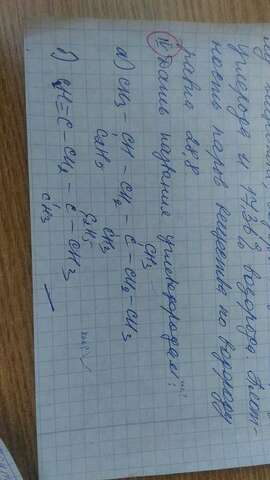 углерода и 17,3% водорода. Плот-
ность паров вещества по водороду
равна 28,8
② Дать названия углеродородам:
CH₃
а) CH₃ - CH - CH₂ - C - CH₂ - CH₃
C₂H₅ CH₃
C₂H₅
б) CH≡C - CH₂ - C - CH₃
CH₃